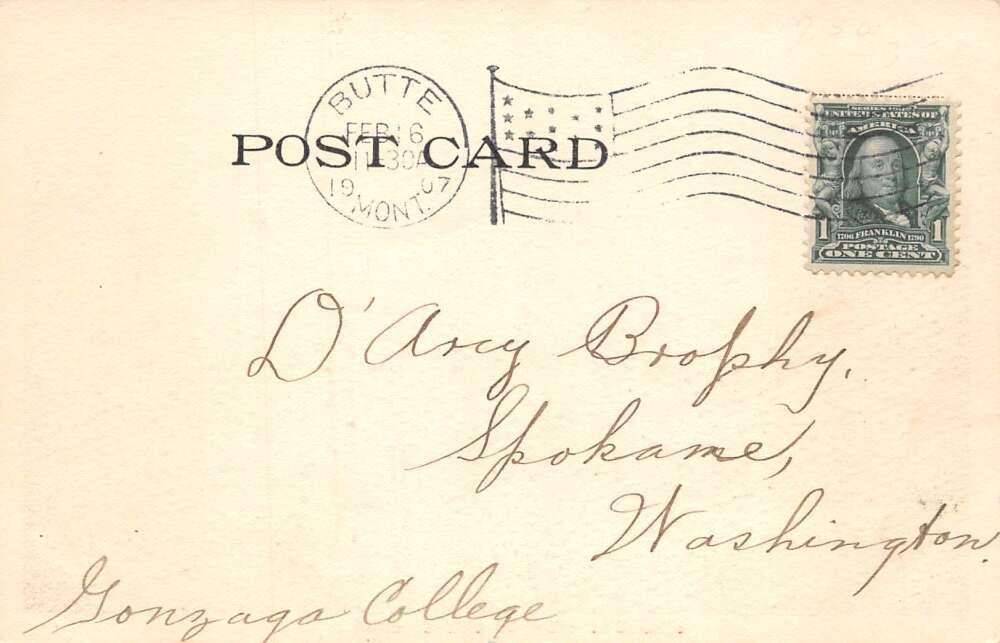 BUTTE
FEB 16
11-30A
1907
MONT.
POST CARD
SERIES 1902
UNITED STATES OF
AMERICA
1 1706 FRANKLIN 1790 1
POSTAGE
ONE CENT
D'Arcy Brophy,
Spokane,
Washington.
Gonzaga College